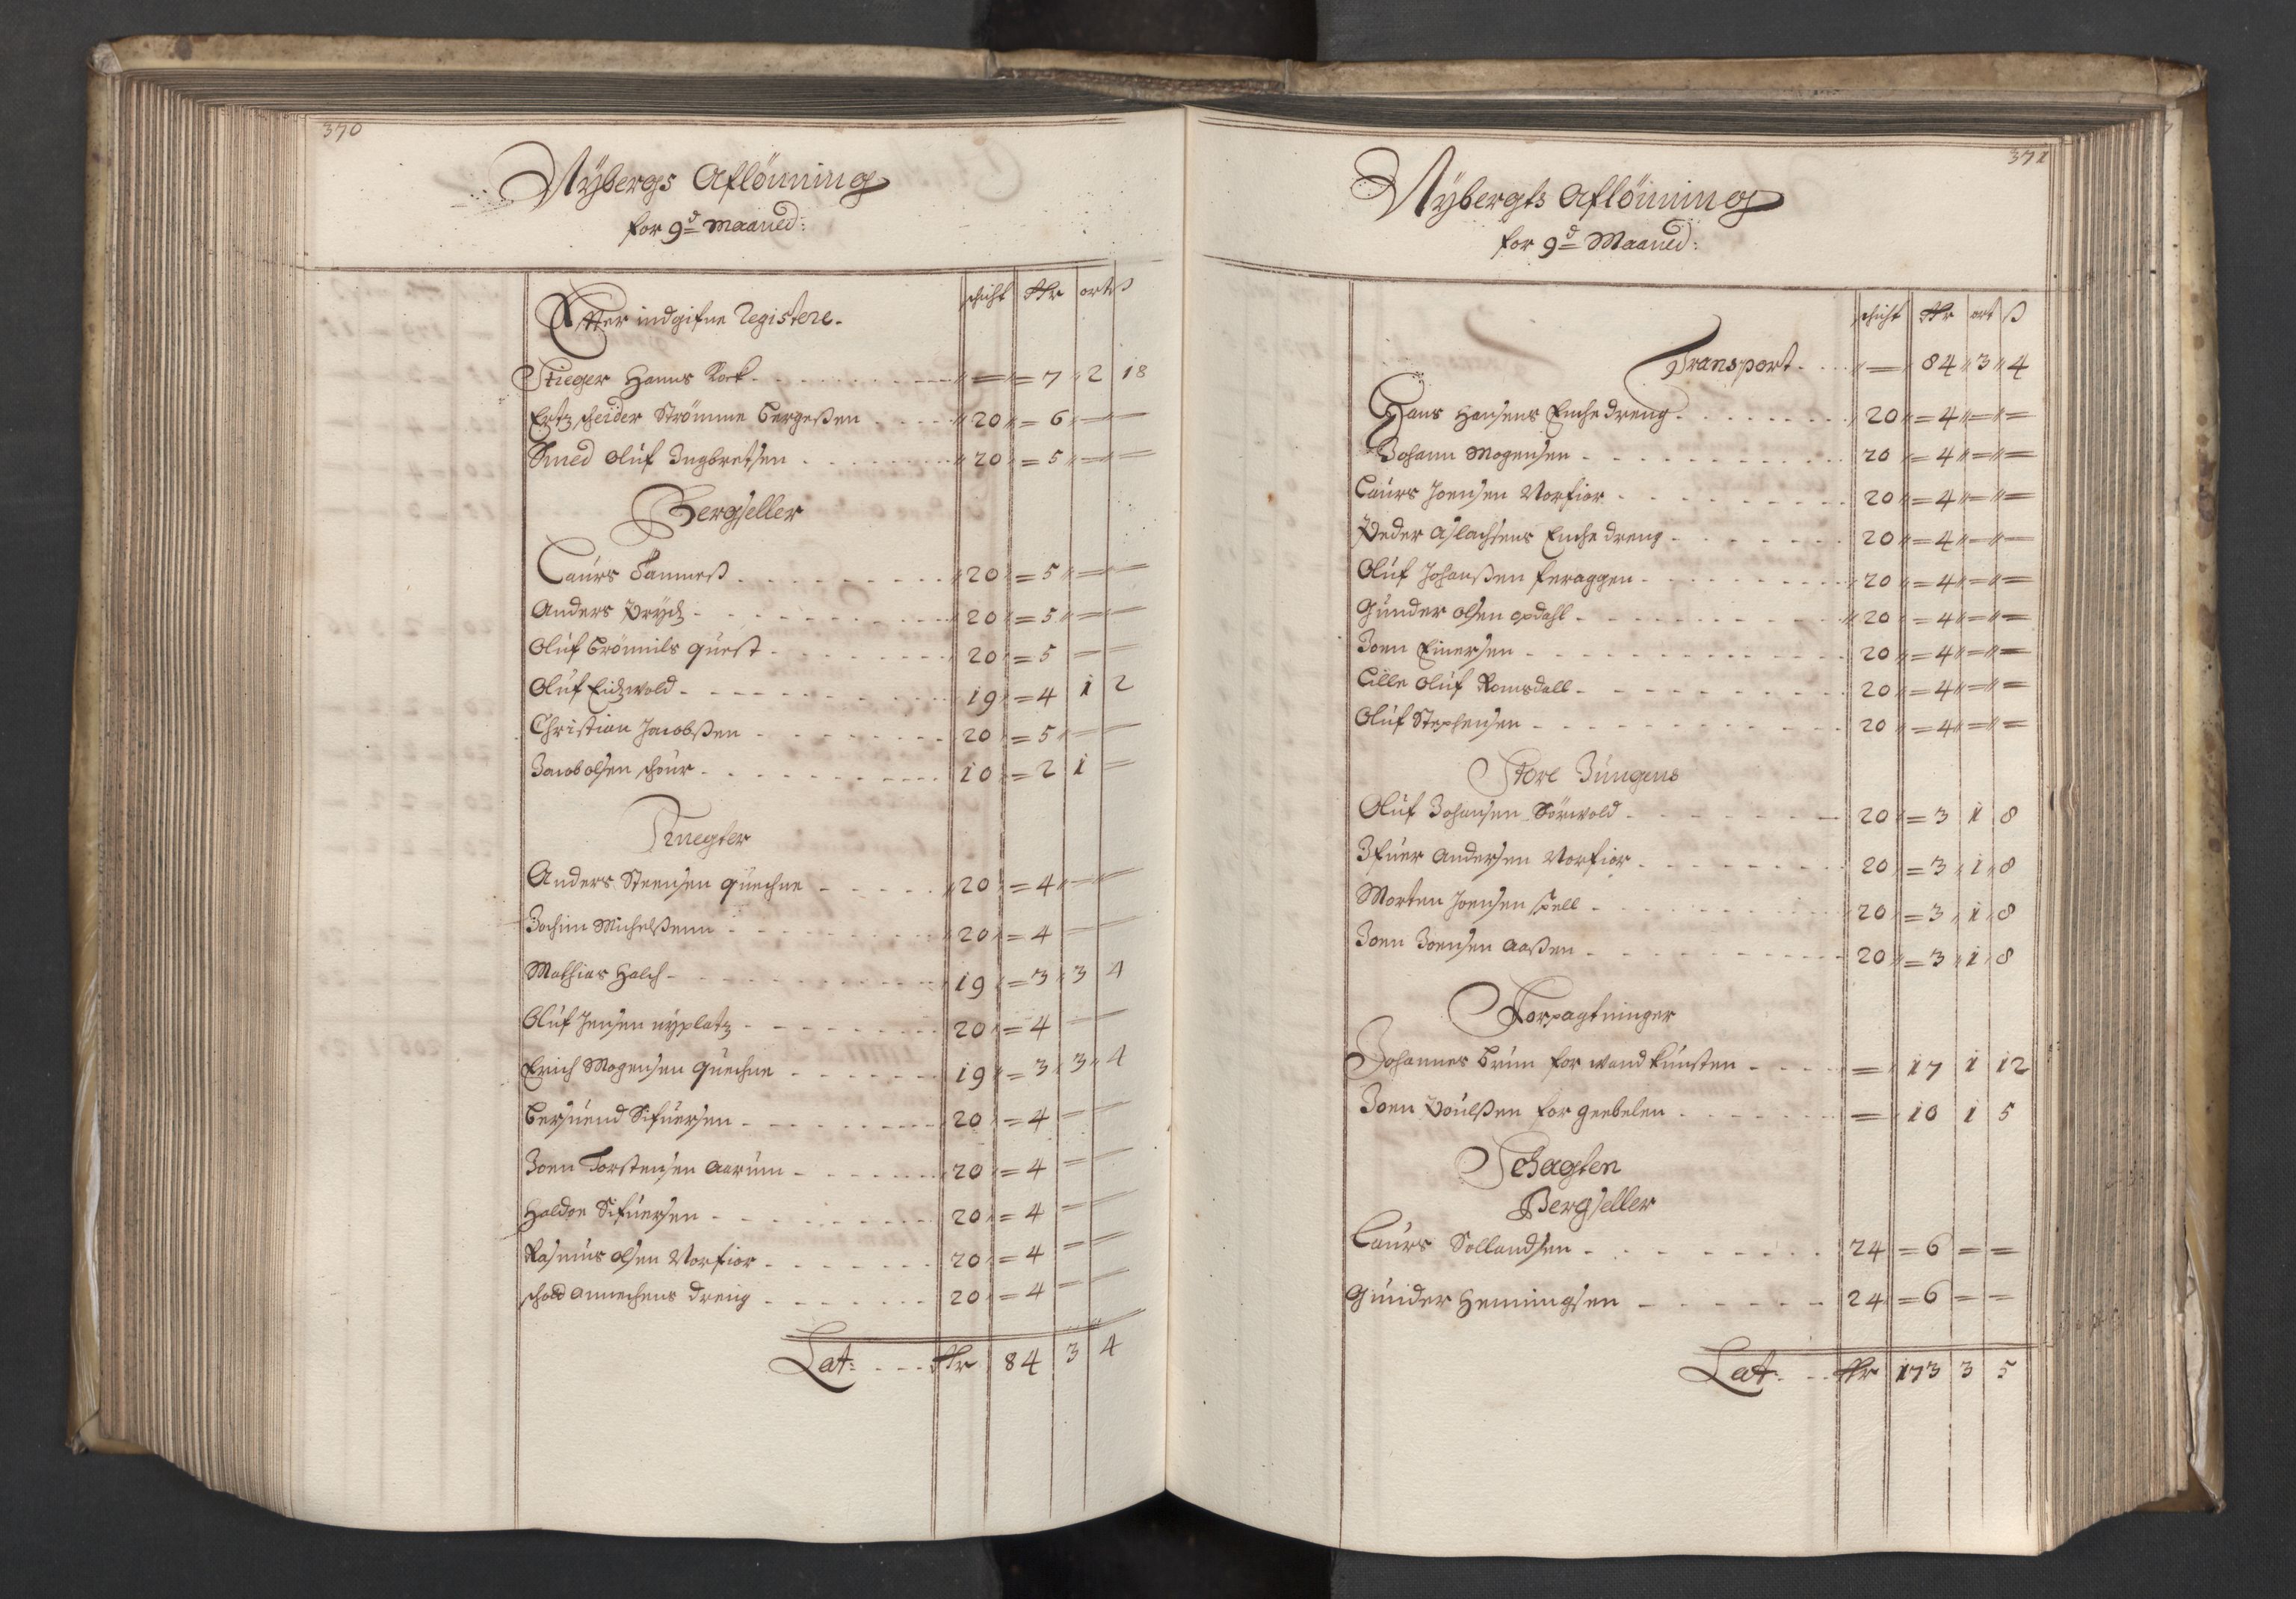 370
Nÿbergs Aflönning
for 9d Maaned:
Effter indgifne Registere. schicht Rdr ort ß
Stieger Hanns Rock - = = 7 2 18
Ertzscheider Strömme Bergeßen - 20 = 6 = =
Smed Oluf Ingbretsen - 20 = 5 = =
Bergseller
Laurs Sanneß - 20 = 5 = =
Anders Prÿtz - 20 = 5 = =
Oluf Brömnils quest - 20 = 5 = =
Oluf Eidzwold - 19 = 4 1 2
Christian Jacobßen - 20 = 5 = =
Jacob Olsen schour - 10 = 2 1 =
Knegter
Anders Steensen quechne - 20 = 4 = =
Jochim Michelßenn - 20 = 4 = =
Mathias Holch - 19 = 3 3 4
Oluf Jensen nÿplatz - 20 = 4 = =
Erich Mogensen quechne - 19 = 3 3 4
Bersuend Sifuersen - 20 = 4 = =
Joen Torstensen Aarum - 20 = 4 = =
Haldoe Sifuersen - 20 = 4 = =
Rasmus Olsen Norfior - 20 = 4 = =
schold Annechens dreng - 20 = 4 = =
Lat: - Rdr 84 3 4
371
Nÿbergts Aflönning
for 9d Maaned:
schicht Rdr ort ß
Transport - = 84 3 4
Hans Hansens Enche dreng - 20 = 4 = =
Johann Mogensen - 20 = 4 = =
Laurs Joensen Norfior - 20 = 4 = =
Peder Aslachsens Enche dreng - 20 = 4 = =
Oluf Johanßen feraggen - 20 = 4 = =
Gunder Olsen opdahl - 20 = 4 = =
Joen Einersen - 20 = 4 = =
Lille Oluf Romsdall - 20 = 4 = =
Oluf Stephensen - 20 = 4 = =
Store Jungens
Oluf Johansen Sörwold - 20 = 3 1 8
Ifuer Andersen Norfior - 20 = 3 1 8
Morten Joensen spell - 20 = 3 1 8
Joen Joensen Aaßen - 20 = 3 1 8
Forpagtninger
Johannes Brun for wand kunsten - = 17 1 12
Joen Poulßen for geebelen - = 10 1 5
Schagten
Bergseller
Laurs Sollandsen - 24 = 6 = =
Gunder Hemmingsen - 24 = 6 = =
Lat. - Rdr 173 3 5